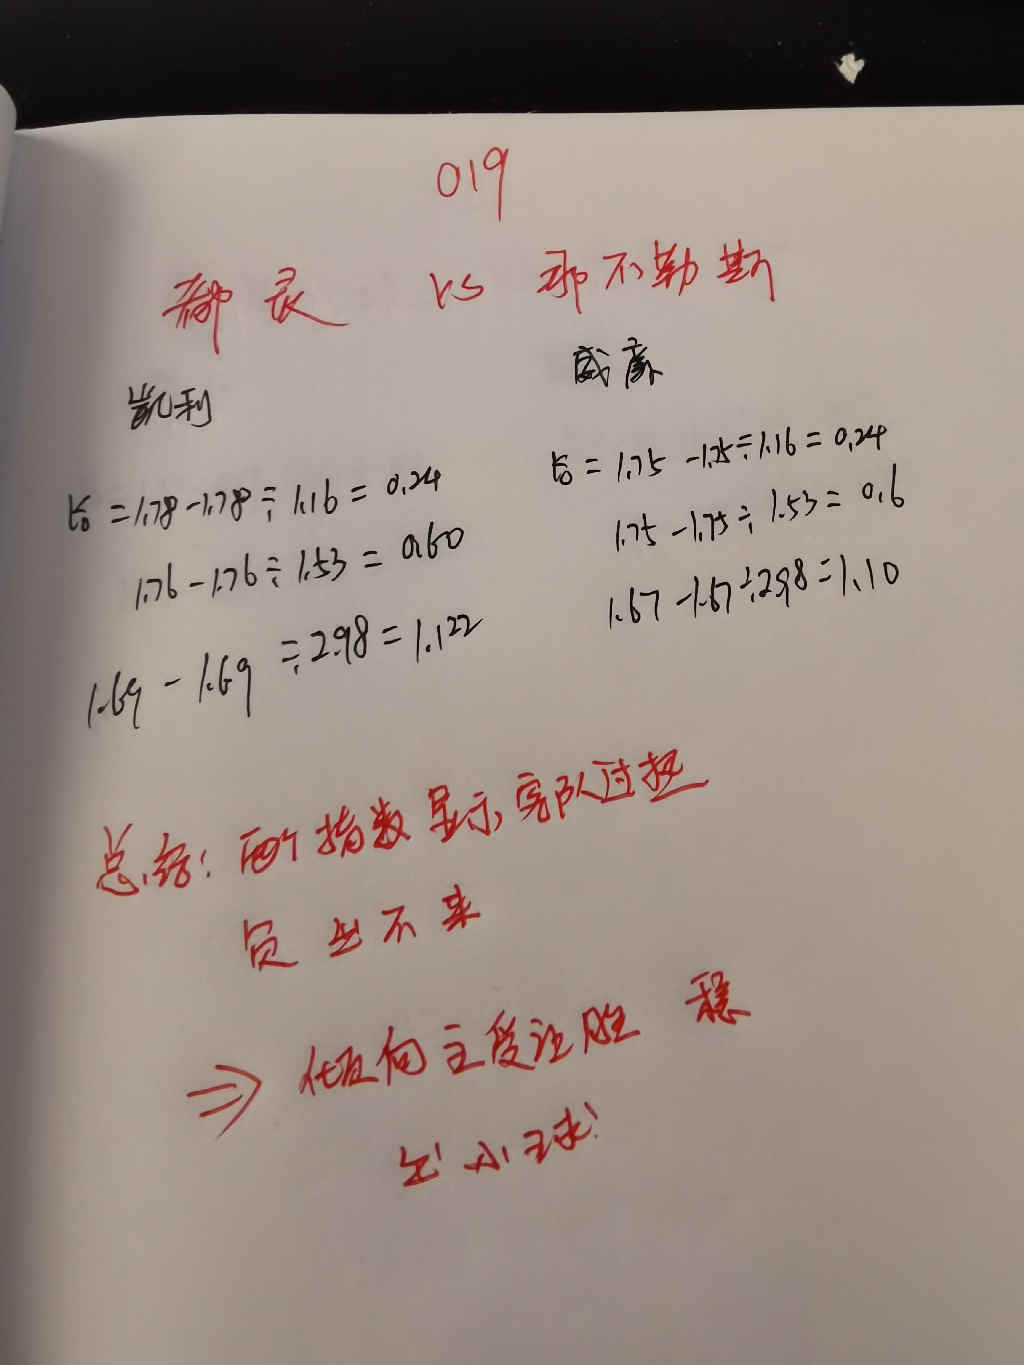 019
都灵 VS 那不勒斯
凯利
=1.78-1.78÷1.16=0.24
1.76-1.76÷1.53=0.60
1.69-1.69÷2.98=1.122
威廉
=1.75-1.75÷1.16=0.24
1.75-1.75÷1.53=0.6
1.67-1.67÷2.98=1.10
总结:两个指数显示,客队过热
负出不来
⇒倾向主受让胜 稳
小球